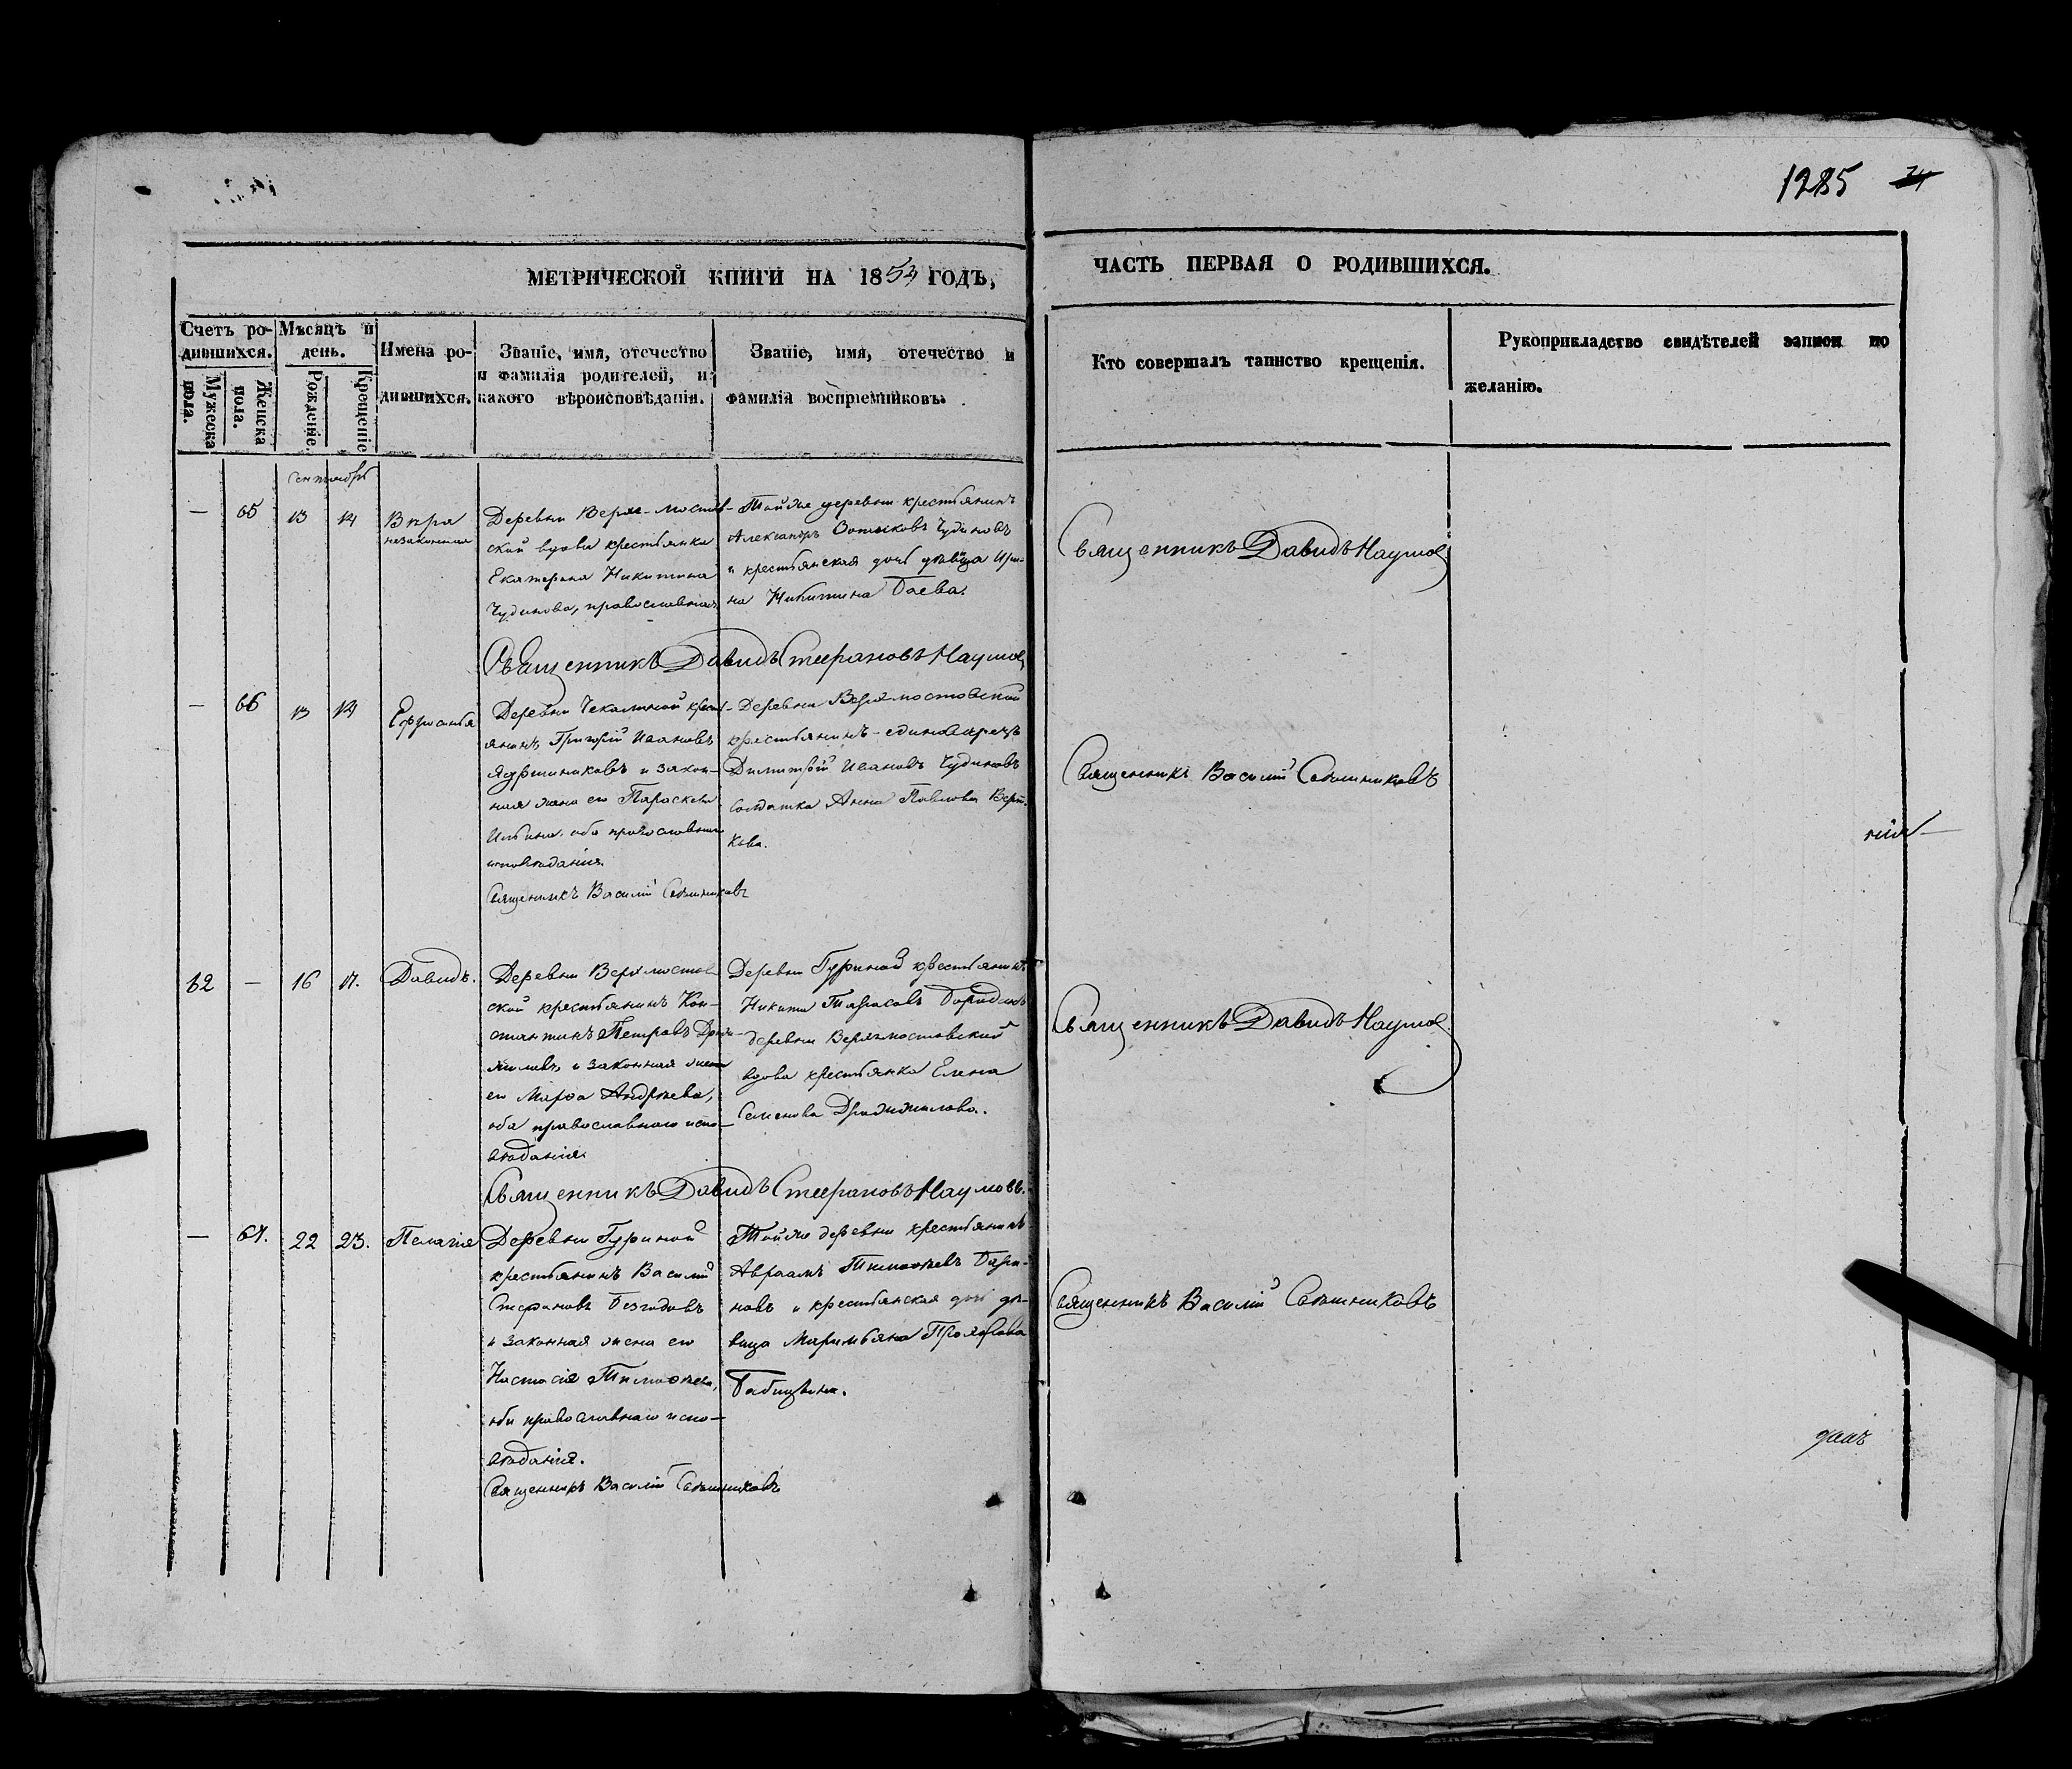 1285 24
МЕТРИЧЕСКОЙ КНИГИ НА 1854 ГОДЪ,
ЧАСТЬ ПЕРВАЯ О РОДИВШИХСЯ.
Счетъ родившихся.
Мужеска пола.
Женска пола.
Мѣсяцъ и день.
Рожденіе.
Крещеніе
Имена родившихся.
Званіе, имя, отечество
и фамилія родителей, и
какого вѣроисповѣданія.
Званіе, имя, отечество и
фамилія воспріемниковъ.
Кто совершалъ таинство крещенія.
Рукоприкладство свидѣтелей записи по
желанію.
Сентябрь
— 65 13 14
Вѣра
незаконная
Деревни Верх-мостов-
ской вдова крестьянка
Екатерина Никитина
Чудинова, православная
Той же деревни крестьянинъ
Александръ Зотиковъ Чудиновъ
и крестьянская дочь дѣвица Ири-
на Никитина Баева.
Священникъ Давидъ Наумов
Священникъ Давидъ Стефановъ Наумов
— 66 13 14
Деревни крест-
янинъ Григорій Ивановъ
и закон-
ная жена его Параскева
Ильина, оба православнаго
исповѣданія.
Деревни
крестьянинъ-единовѣрецъ
Димитрій Ивановъ Чудиновъ
Солдатка Анна Павлова
кова.
Священникъ Василій
Священникъ Василій
62 — 16 17.
Давидъ.
Деревни Верхмостов-
ской крестьянинъ Кон-
стантинъ Петровъ
и законная жена
его Марѳа Андреева,
оба православнаго испо-
вѣданія.
Деревни Гуриной крестьянинъ
Никита Тарасовъ
деревни Верхмостовской
вдова крестьянка Елена
Семенова
Священникъ Давидъ Наумов
Священникъ Давидъ Стефановъ Наумовъ.
— 67. 22 23.
Пелагія
Деревни Гуриной
крестьянинъ Василій
Стефановъ Безгодовъ
и законная жена его
Настасія Тимоѳеева,
оба православнаго испо-
вѣданія.
Той же деревни крестьянинъ
Авраамъ Тимоѳеевъ
новъ и крестьянская дочь дѣ-
вица
Священникъ Василій
Священникъ Василій